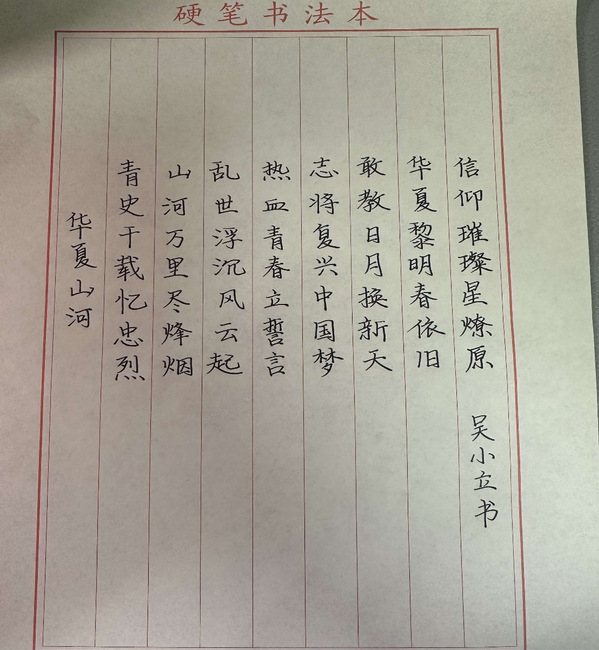 硬笔书法本
华夏山河
青史千载忆忠烈
山河万里尽烽烟
乱世浮沉风云起
热血青春立誓言
志将复兴中国梦
敢教日月换新天
华夏黎明春依旧
信仰璀璨星燎原
吴小立书